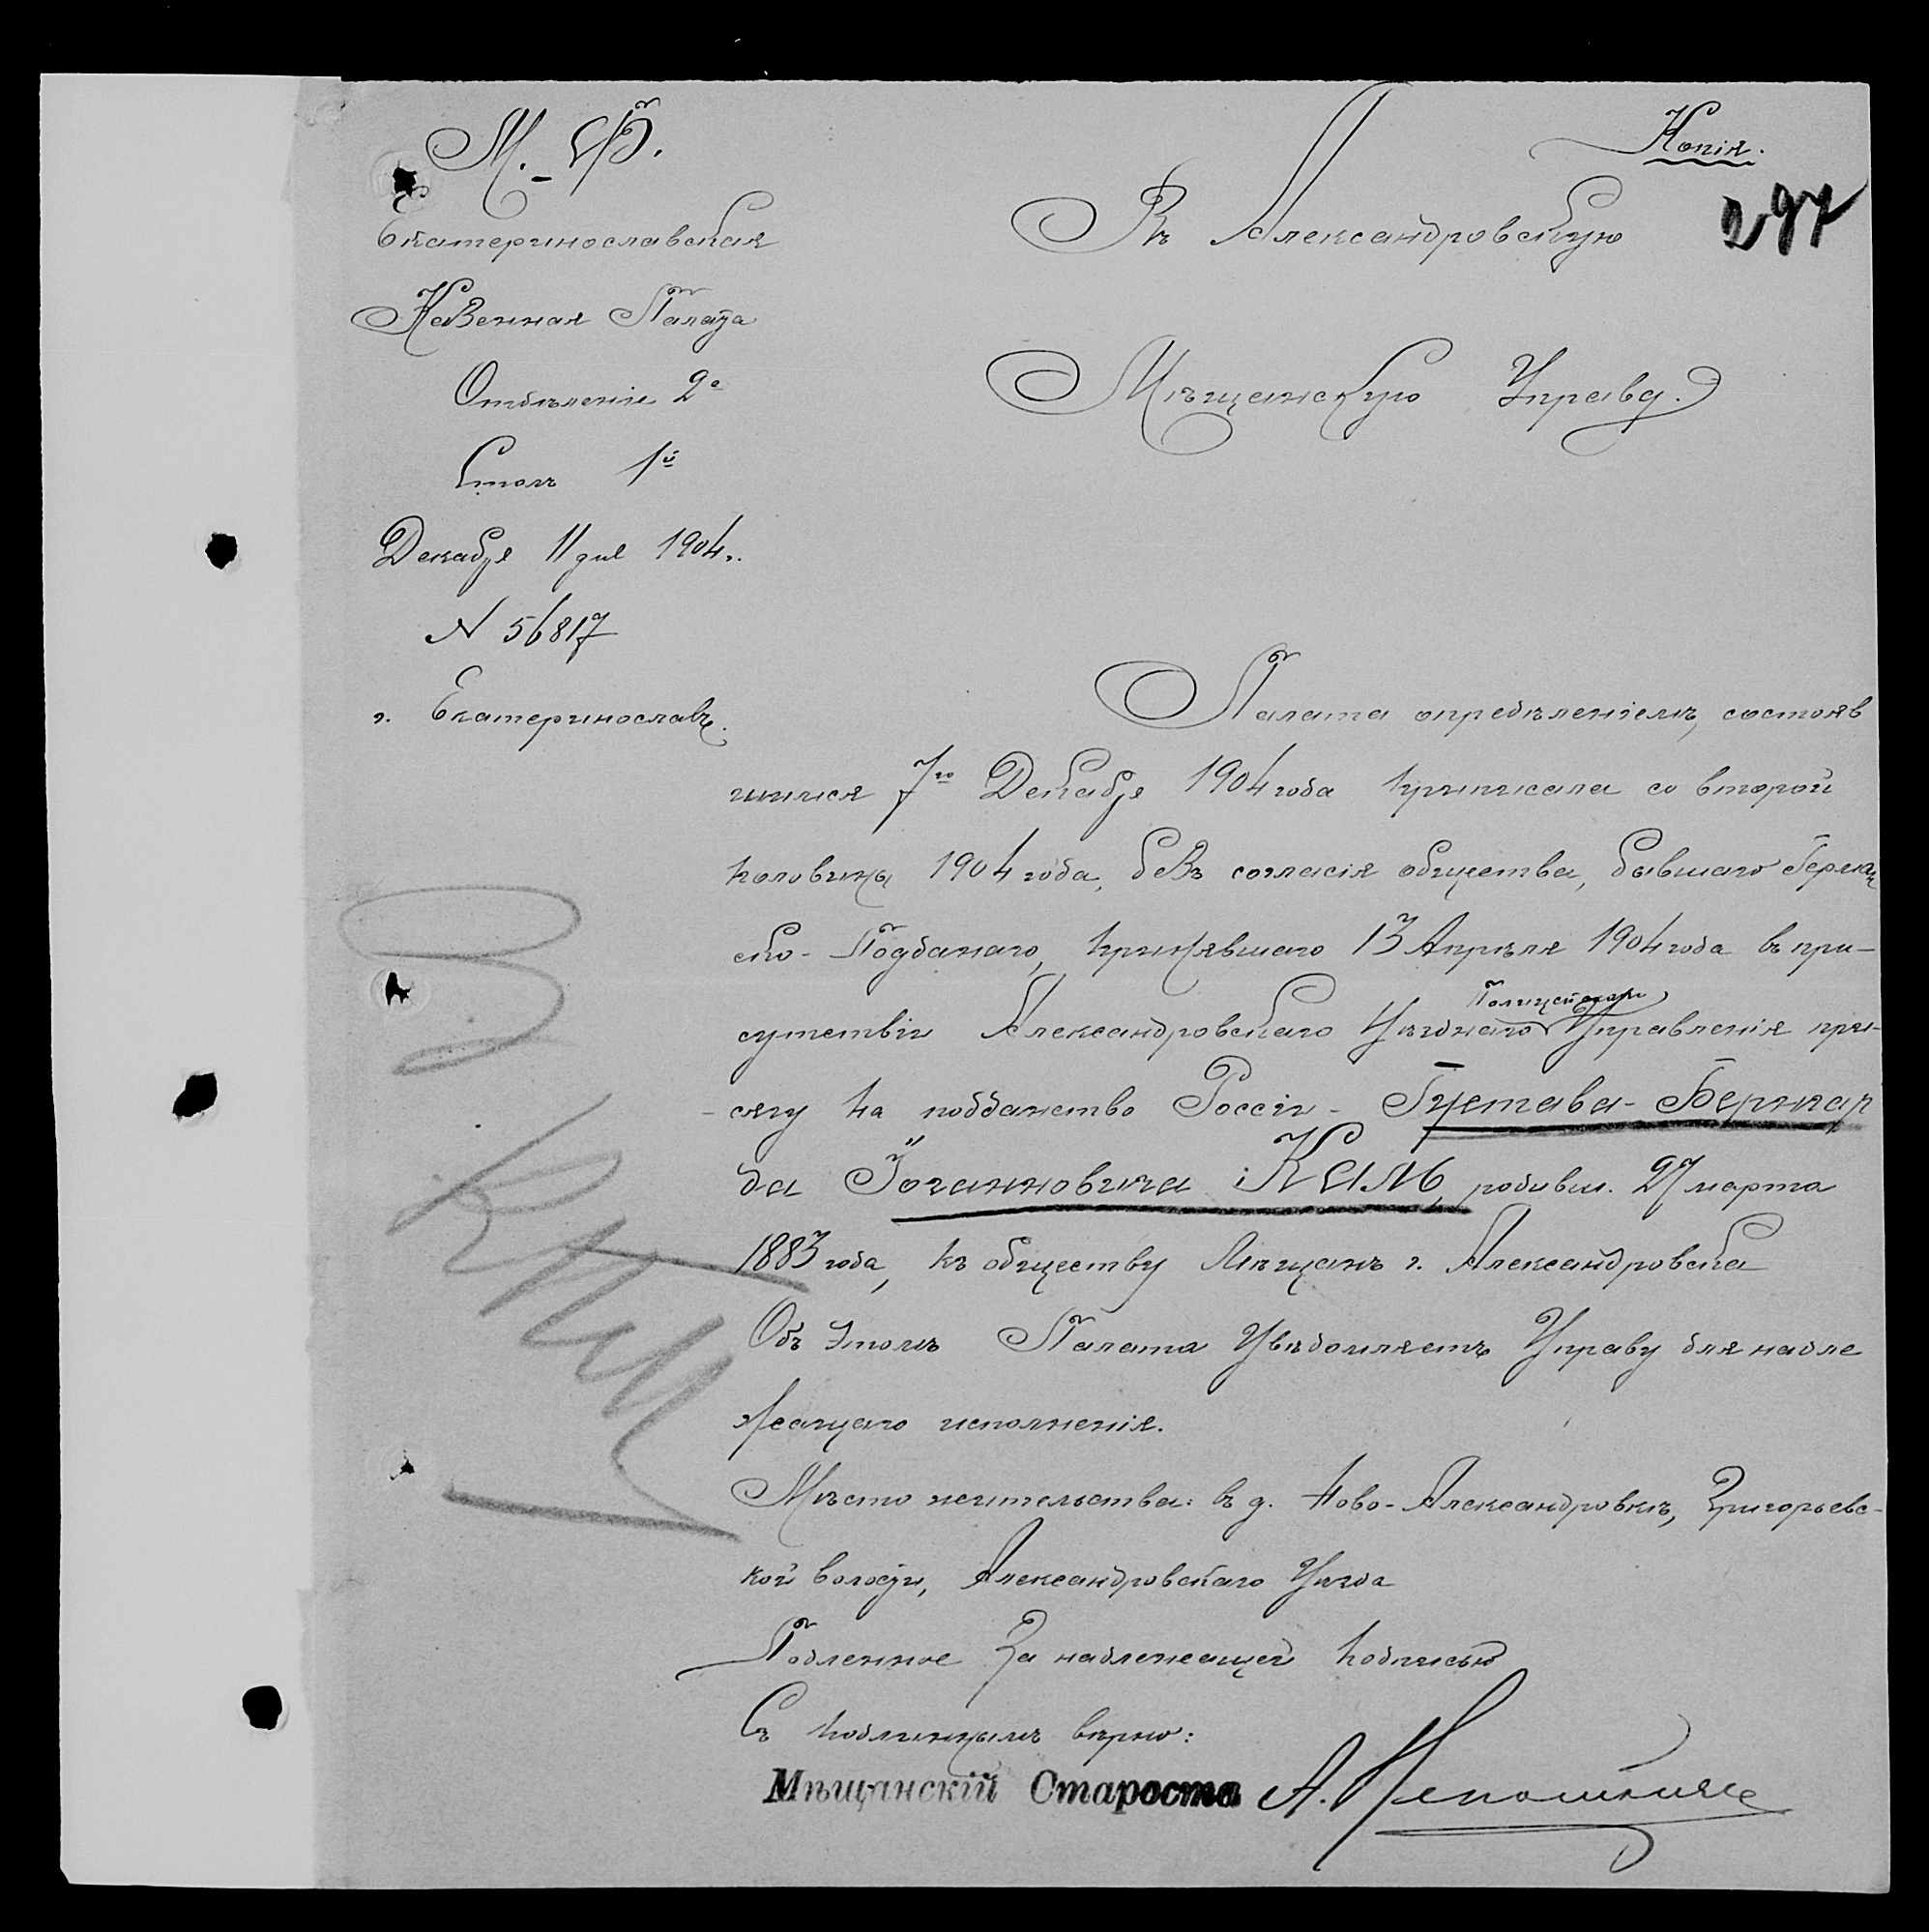 Копія.
297
М. Ф.
Екатеринославская
Казенная Палата
Отдѣленіе 2е
Столъ 1й
Декабря 11 дня 1904 г.
N 56817
г. Екатеринославъ.
Въ Александровскую
Мѣщанскую Управу.
Палата опредѣленіемъ, состояв
шимся 7го Декабря 1904 года причислила со второй
половины 1904 года, безъ согласія общества, бывшаго Герман
ско-Подданаго, принявшаго 13 Апрѣля 1904 года въ при-
Полицейскаго
сутствіи Александровскаго Уѣзднаго Управленія при-
сягу на подданство Россіи - Густава-Бернгар
да Іоганновича КАМ, родивш. 27 марта
1883 года, къ обществу мѣщанъ г. Александровска
Объ этомъ Палата увѣдомляетъ Управу для надле
жащаго исполненія.
Мѣсто жительства: въ д. Ново-Александровкѣ, Григорьевс-
кой волости, Александровскаго Уѣзда
Подленное за надлежащей подписью
Съ подлиннымъ вѣрно:
Мѣщанскій Староста А.